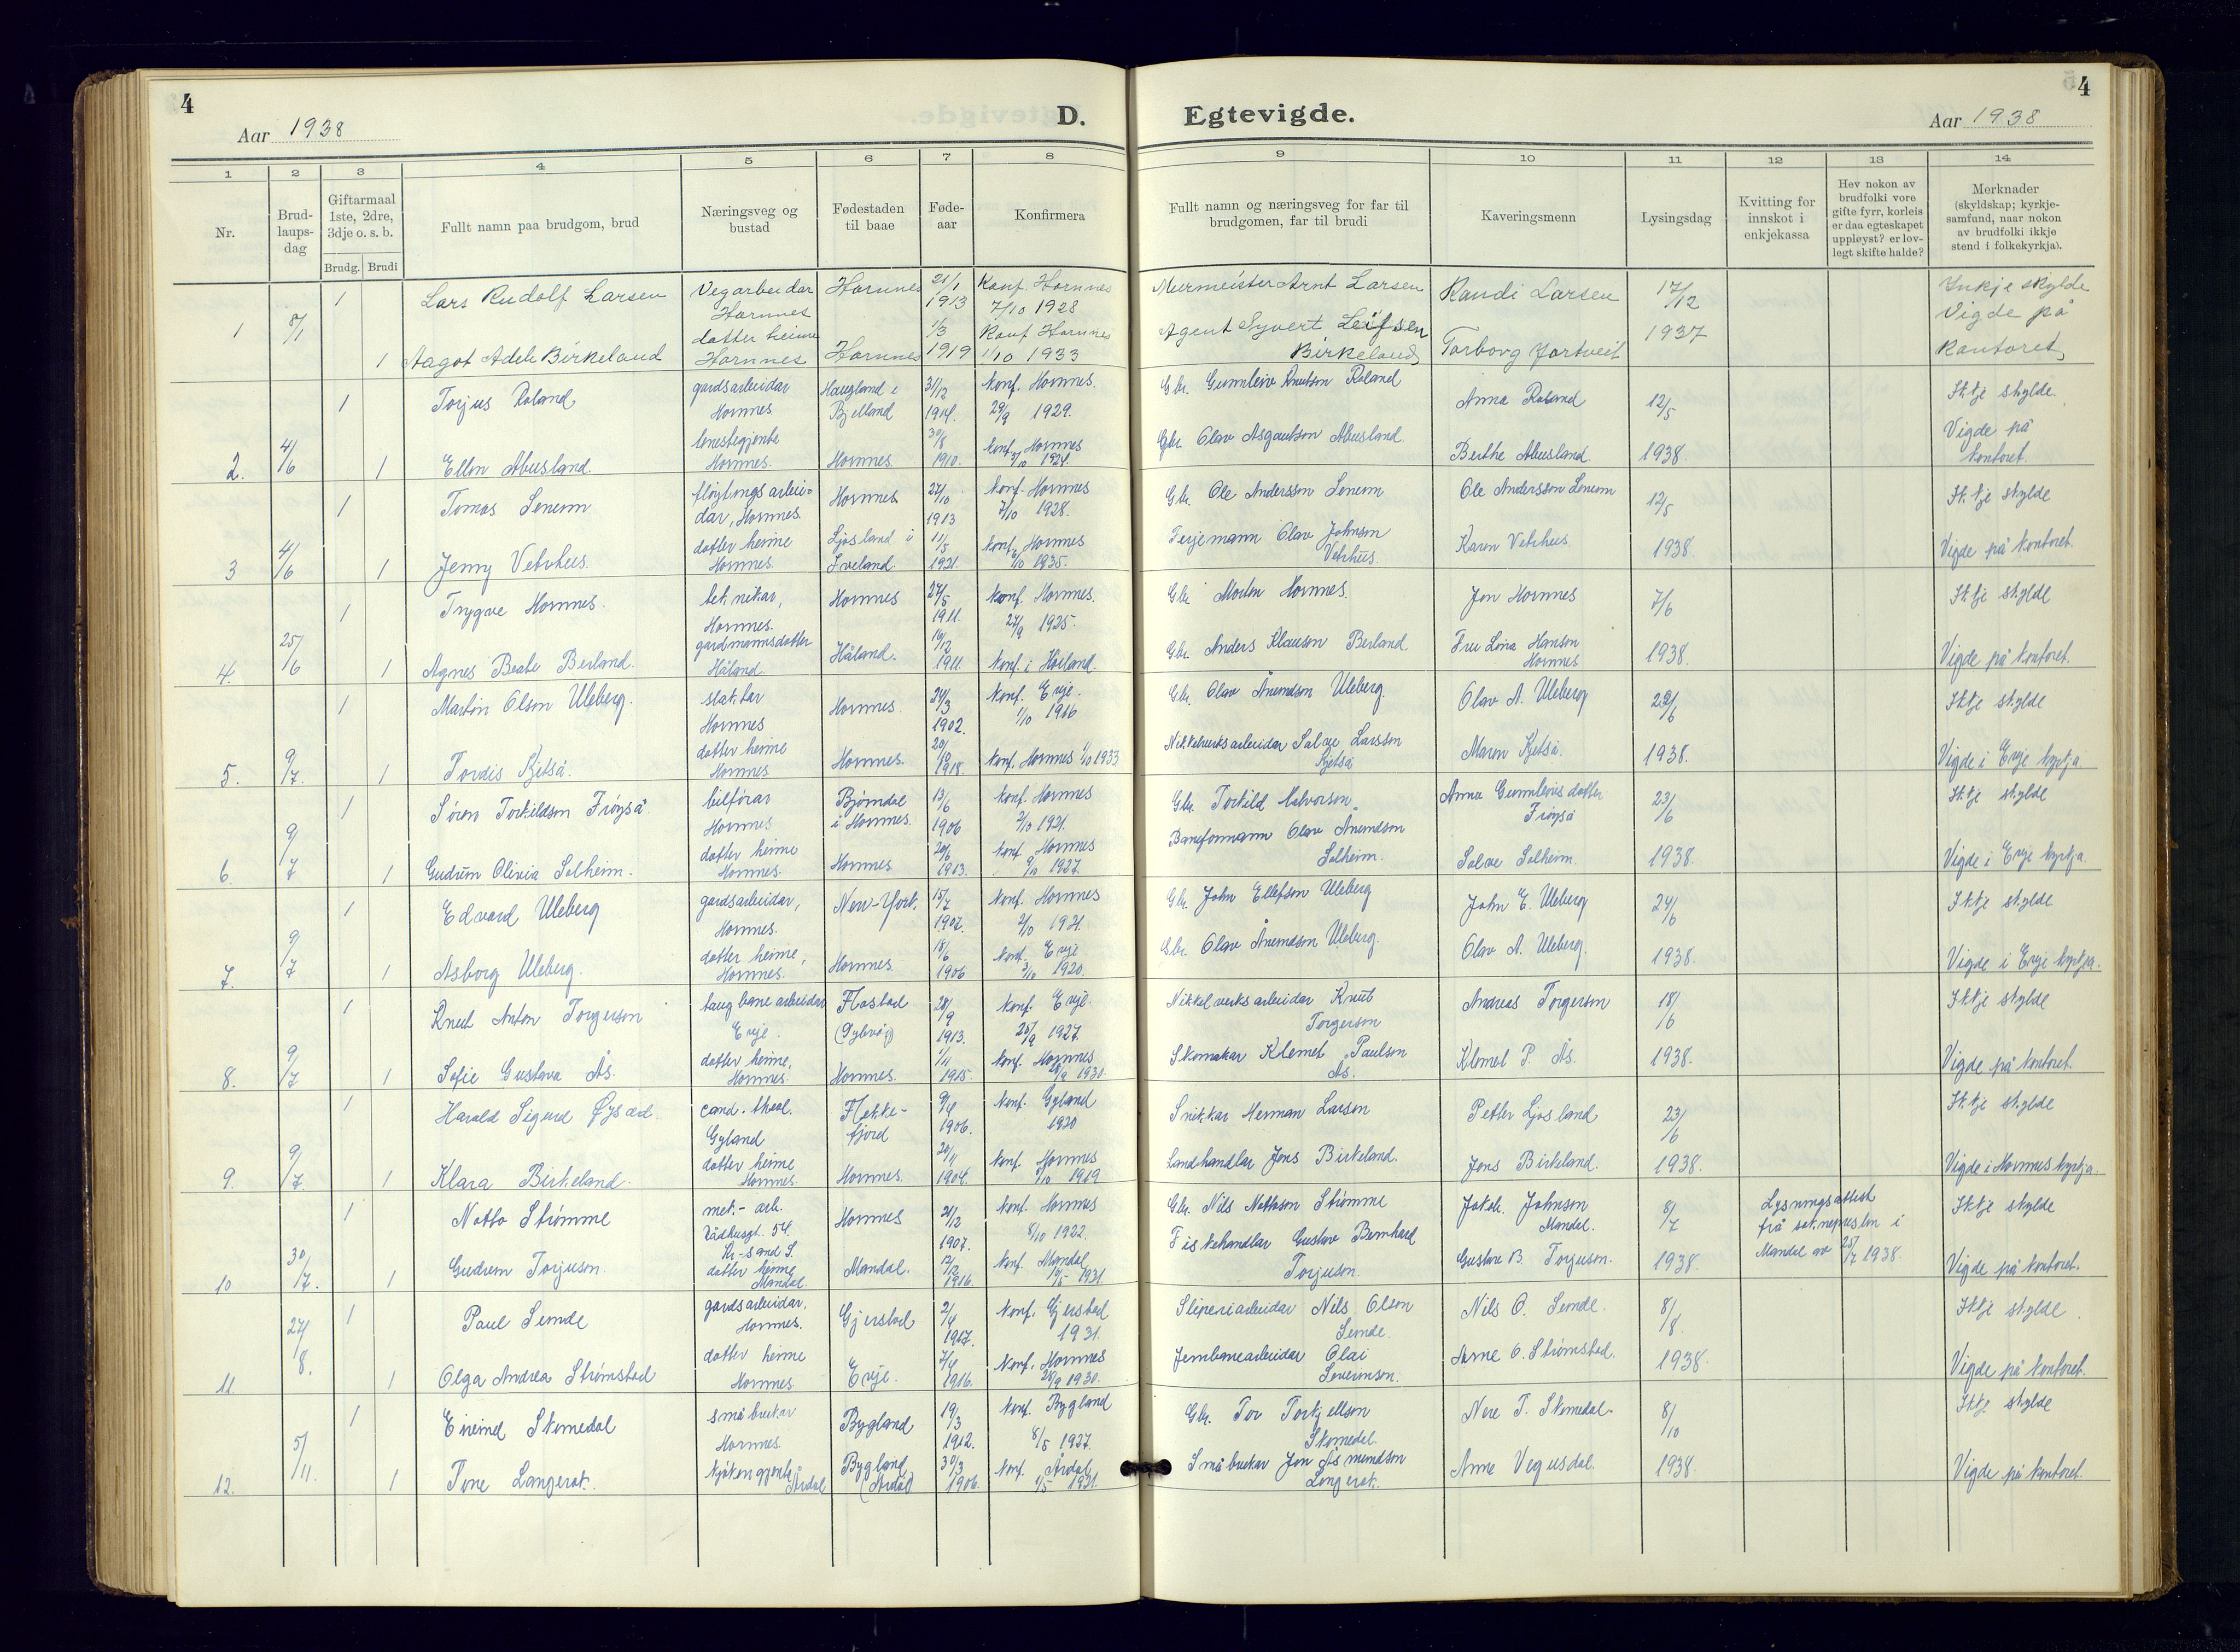 4
Aar 1938
D.
Egtevigde.
Aar 1938
4
1 2 3 4 5 6 7 8 9 10 11 12 13 14
Nr.
Brud-
laups-
dag
Giftarmaal
1ste, 2dre,
3dje o. s. b.
Brudg. Brudi
Fullt namn paa brudgom, brud
Næringsveg og
bustad
Fødestaden
til baae
Føde-
aar
Konfirmera
Fullt namn og næringsveg for far til
brudgomen, far til brudi
Kaveringsmenn
Lysingsdag
Kvitting for
innskot i
enkjekassa
Hev nokon av
brudfolki vore
gifte fyrr, korleis
er daa egteskapet
uppløyst? er lov-
legt skifte halde?
Merknader
(skyldskap; kyrkje-
samfund, naar nokon
av brudfolki ikkje
stend i folkekyrkja).
1 8/1
1 Lars Rudolf Larsen
Vegarbeidar
Hornnes
Hornnes
21/1
1913
Konf. Hornnes
7/10 1928
Murmeister Arnt Larsen
Randi Larsen
17/12
1937
Inkje skylde
Vigde på
Kontoret
1 Aagot Adele Birkeland
dotter heime
Hornnes
Hornnes
1/3
1919
Konf Hornnes
1/10 1933
Agent Syvert Leifsen
Birkeland
Torborg Jortveit
2. 4/6
1 Torjus Roland
gardsarbeidar
Hornnes
Haugland i
Bjelland
31/12
1914.
Konf. Hornnes.
29/9 1929.
Gbr. Gunnleiv Knutson Roland
Anna Roland
12/5
1938.
Ikkje skylde.
Vigde på
kontoret.
1 Ellen Abusland.
tenestegjente
Hornnes.
Hornnes.
30/8
1910.
Konf. Hornnes
5/10 1924.
Gbr. Olav Asgautson Abusland.
Berthe Abusland
3 4/6
1 Tomas Senum
fløytingsarbei-
dar, Hornnes.
Hornnes
27/10
1913
Konf. Hornnes
7/10 1928.
Gbr. Ole Andersson Senum
Ole Andersson Senum
12/5
1938.
Ikkje skylde
Vigde på kontoret.
1 Jenny Vetrhus.
dotter heime
Hornnes.
Ljosland i
Iveland.
11/5
1921.
Konf. Hornnes
6/10 1935.
Ferjemann Olav Johnson
Vetrhus.
Karen Vetrhus
4. 25/6
1 Trygve Hornnes.
teknikar,
Hornnes.
Hornnes
27/5
1911.
Konf. Hornnes.
27/9 1925.
Gbr. Morten Hornnes.
Jon Hornnes
7/6
1938.
Ikkje skylde
Vigde på kontoret.
1 Agnes Beate Berland.
gardmannsdotter
Håland.
Håland.
16/12
1911
Konf. i Håland.
Gbr. Anders Klauson Berland.
Fru Lina Hanson
Hornnes
5. 9/7.
1 Martin Olson Uleberg.
slaktar
Hornnes
Hornnes.
24/3
1902.
Konf. Evje.
1/10 1916
Gbr. Olav Ånundson Uleberg.
Olav A. Uleberg
22/6
1938.
Ikkje skylde
Vigde i Evje kyrkja
1 Tordis Kjetså.
dotter heime
Hornnes
Hornnes.
20/10
1918.
Konf. Hornnes 1/10 1933
Nikkelverksarbeidar Salve Larsson
Kjetså
Maren Kjetså.
6. 9/7
1 Søren Torkildson Frøyså.
bilførar
Hornnes
Bjørndal
i Hornnes.
13/6
1906
Konf. Hornnes
2/10 1921.
Gbr. Torkild Halvorson.
Anna Gunnleivsdotter
Frøyså
23/6
1938.
Ikkje skylde
Vigde i Evje kyrkja
1 Gudrun Olivia Solheim.
dotter heime
Hornnes.
Hornnes
20/6
1913.
Konf Hornnes
9/10 1927.
Baneformann Olav Ånundson
Solheim.
Salve Solheim.
7. 9/7
1 Edvard Uleberg
gardsarbeidar,
Hornnes.
New-York.
15/7
1907.
Konf. Hornnes
2/10 1921.
Gbr. John Ellefson Uleberg
John E. Uleberg
24/6
1938.
Ikkje skylde
Vigde i Evje kyrkja.
1 Asborg Uleberg.
dotter heime,
Hornnes.
Hornnes.
18/6
1906
Konf. Evje
3/10 1920.
Gbr. Olav Ånundson Uleberg.
Olav A. Uleberg.
8. 9/7
1 Knut Anton Torgerson
taugbanearbeidar
Evje.
Flostad
28/9
1913.
Konf. Evje.
25/9 1927.
Nikkelverksarbeidar Knut
Torgerson
Andreas Torgerson
18/6
1938.
Ikkje skylde
Vigde på kontoret.
1 Sofie Gustava Ås.
dotter heime,
Hornnes.
Hornnes.
1/11
1915.
Konf. Hornnes
28/9 1930.
Skomakar Klemet Paulson
Ås.
Klemet P. Ås.
9. 9/7.
1 Harald Sigurd Øysæd.
cand. theol.
Gyland
Flekke-
fjord
9/4
1906.
Konf. Gyland
1920
Snikkar Herman Larson
Petter Ljosland
23/6
1938.
Ikkje skylde
Vigde i Hornnes kyrkja.
1 Klara Birkeland.
dotter heime
Hornnes.
Hornnes.
20/11
1904.
Konf. Hornnes
5/10 1919
Landhandlar Jens Birkeland.
Jens Birkeland.
10 30/7.
1 Notto Strømme
mek.- arb.
Rådhusgt. 54.
Kr-sand S.
Hornnes
21/12
1907.
Konf. Hornnes
8/10 1922.
Gbr. Nils Nottoson Strømme
Jakob Johnson
Mandal.
8/7
1938.
Lysningsattest
frå soknepresten i
Mandal av 25/7 1938.
Ikkje skylde
Vigde på kontoret.
1 Gudrun Torjuson.
dotter heime
Mandal
Mandal.
12/12
1916.
Konf. Mandal
10/5 1931.
Fiskehandlar Gustav Bernhard
Torjuson.
Gustav B. Torjuson.
11. 27/8.
1 Paul Semde
gardsarbeidar,
Hornnes.
Gjerstad
2/4
1917.
Konf. Gjerstad
1931.
Sliperiarbeidar Nils Olson
Semde.
Nils O. Semde.
8/8.
1938.
Ikkje skylde
Vigde på kontoret.
1 Olga Andrea Strømstad
dotter heime
Hornnes.
Evje.
7/4
1916.
Konf. Hornnes
28/9 1930.
Jernbanearbeidar Olai
Severinson.
Arne O. Strømstad.
12. 5/11.
1 Eivind Skomedal
småbrukar
Hornnes.
Bygland
19/3
1912.
Konf. Bygland
8/5 1927.
Gbr. Tor Torkjellson
Skomedal.
Nere T. Skomedal.
8/10
1938.
Ikkje skylde
Vigde på kontoret.
1 Tone Langerak.
kjøkengjente
Årdal
Bygland
(Årdal)
30/3
1906.
Konf. Årdal
1/5 1921.
Småbrukar Jon Åsmundson
Langerak.
Anne Vegusdal.